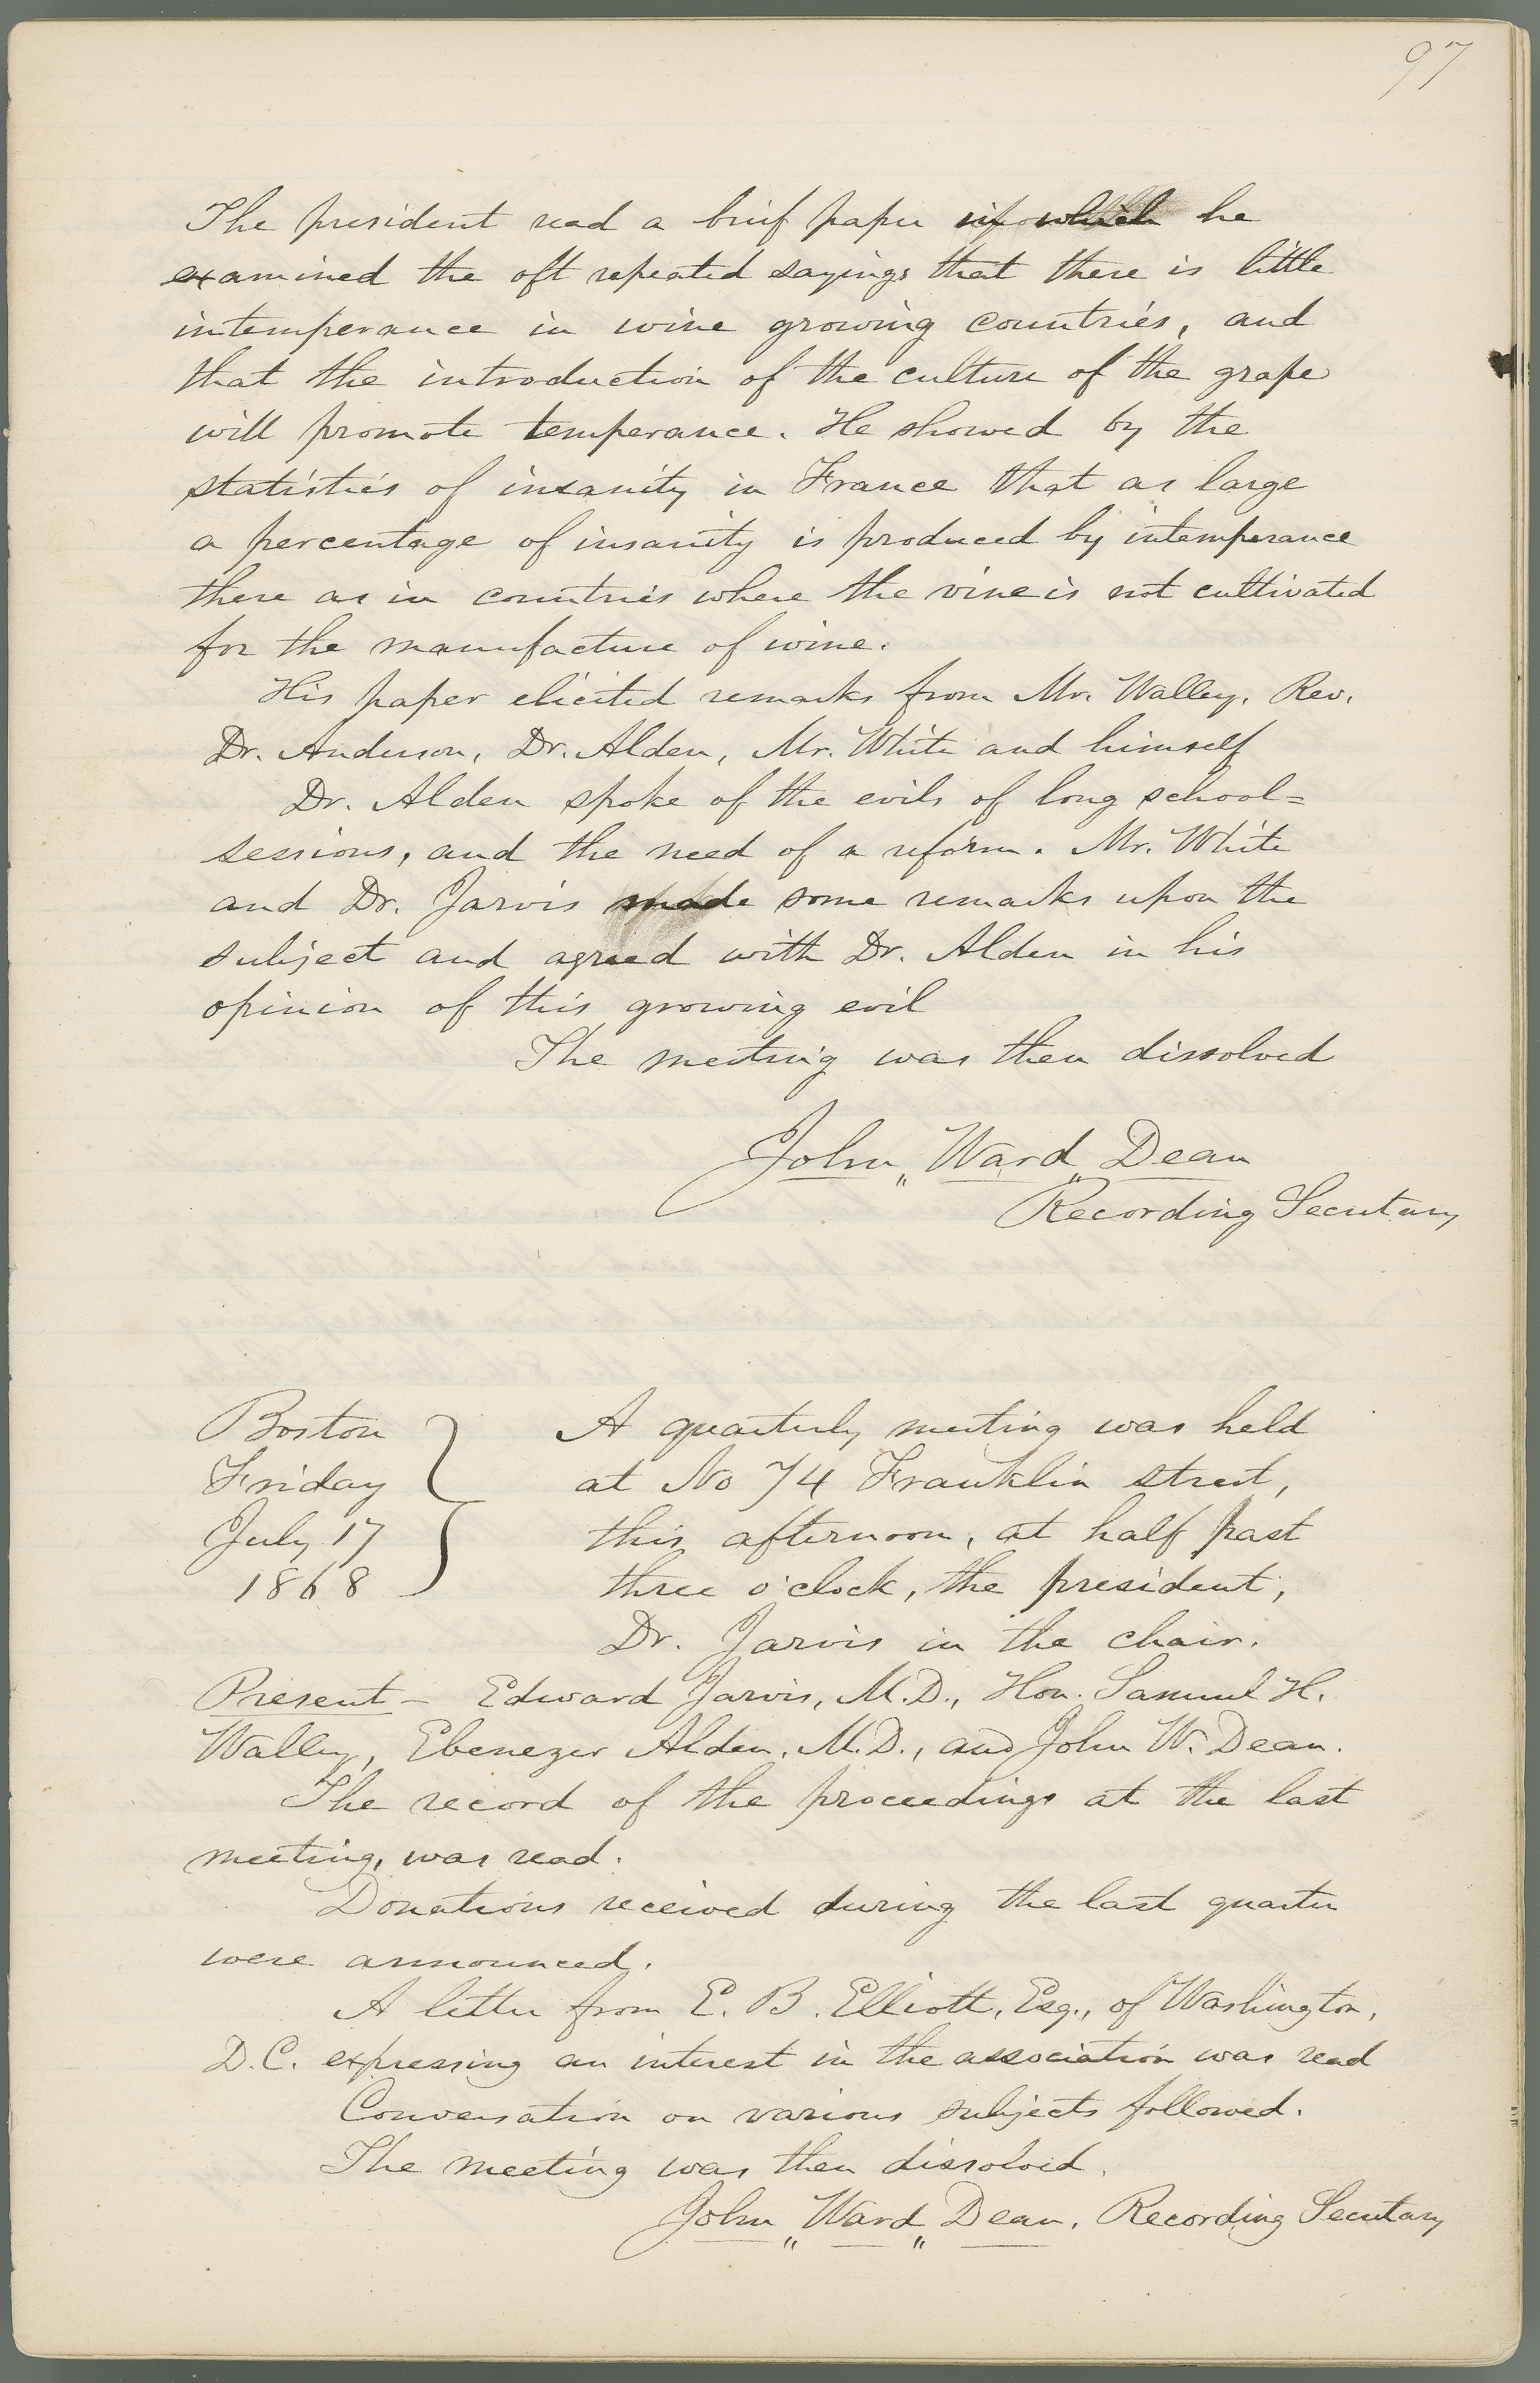 97
The president read a brief paper in which he
examined the oft repeated sayings that there is little
intemperance in wine growing countries, and
that the introduction of the culture of the grape
will promote temperance. He showed by the
statistics of insanity in France that as large
a percentage of insanity is produced by intemperance
there as in countries where the vine is not cultivated
for the manufacture of wine.
His paper elicited remarks from Mr. Walley, Rev.
Dr. Anderson, Dr. Alden, Mr. White and himself
Dr. Alden spoke of the evils of long school=
sessions, and the need of a reform. Mr. White
and Dr. Jarvis made some remarks upon the
subject and agreed with Dr. Alden in his
opinion of this growing evil
The meeting was then dissolved
John „ Ward „ Dean
Recording Secretary
Boston
Friday
July 17
1868
A quarterly meeting was held
at No 74 Franklin street,
this afternoon, at half past
three o'clock, the president,
Dr. Jarvis in the chair.
Present – Edward Jarvis, M.D., Hon. Samuel H.
Walley, Ebenezer Alden, M.D., and John W. Dean.
The record of the proceedings at the last
meeting, was read.
Donations received during the last quarter
were announced.
A letter from E. B. Elliott, Esq., of Washington,
D.C. expressing an interest in the association was read
Conversation on various subjects followed.
The meeting was then dissolved.
John „ Ward „ Dean, Recording Secretary